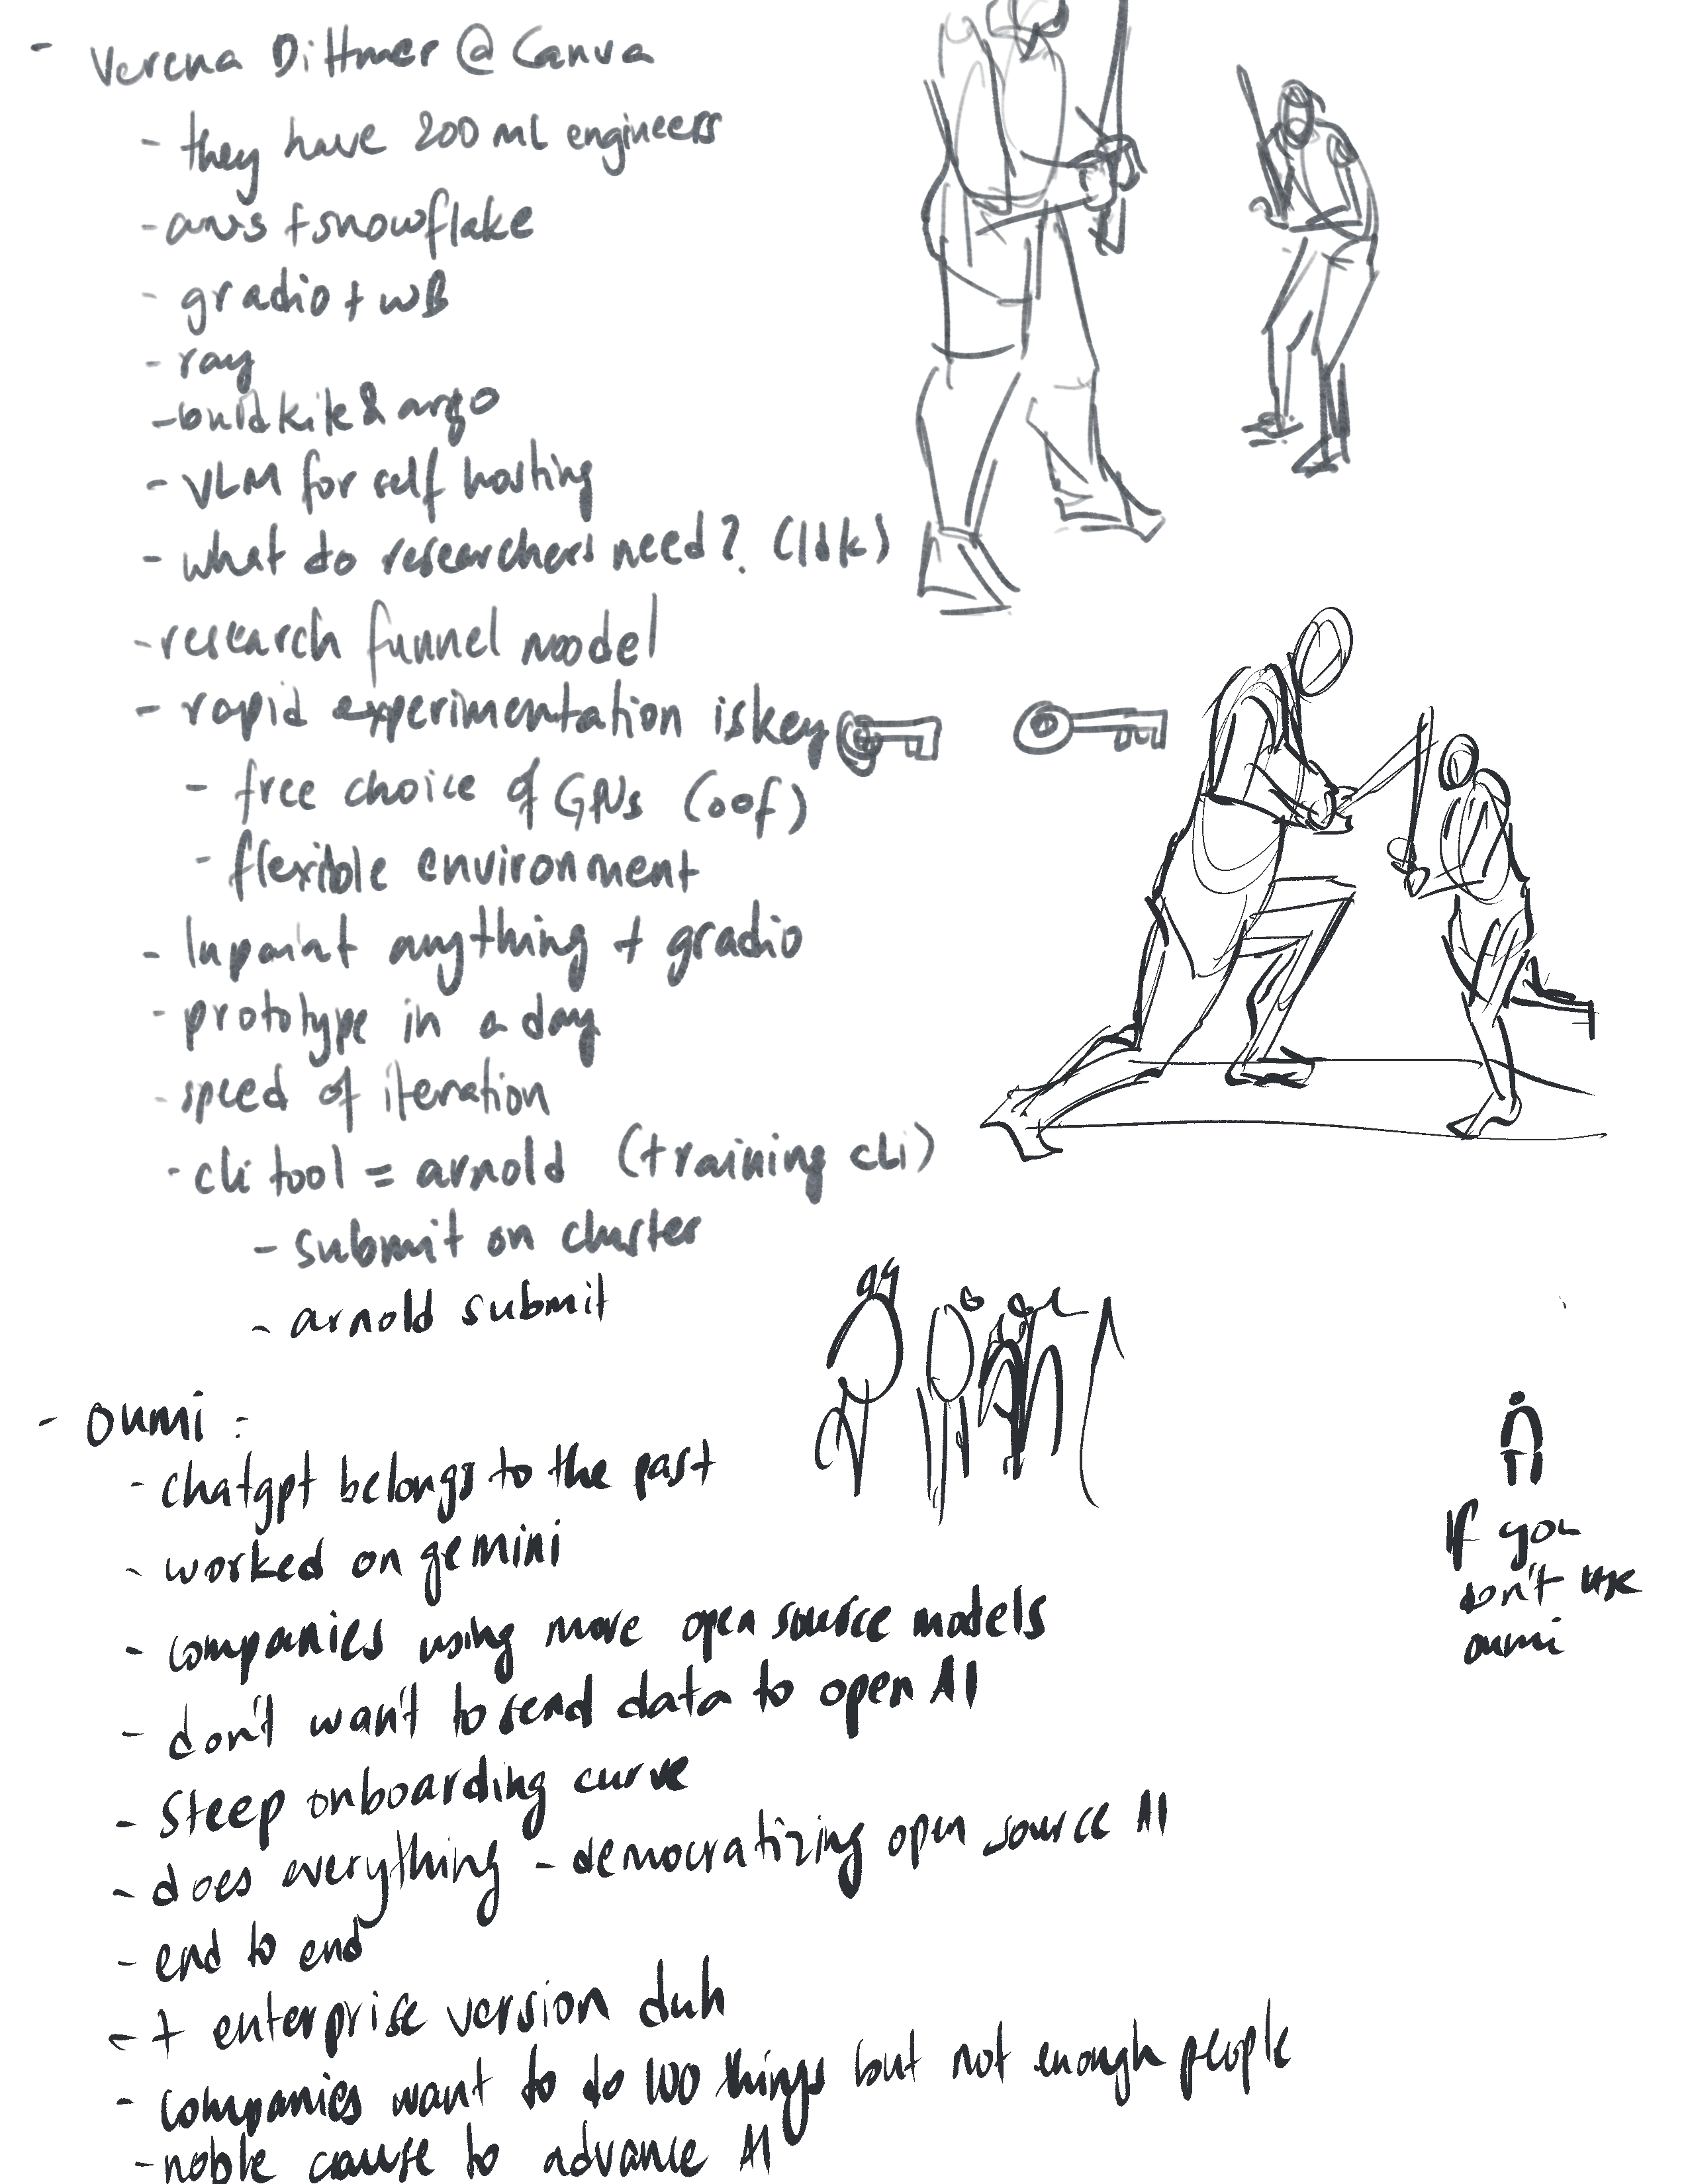 - Verena Dittmer @ Canva
- they have 200 ML engineers
- aws + snowflake
- gradio + WB
- ray
- buildkite & argo
- VLM for self hosting
- what do researchers need? (Idk)
- research funnel model
- rapid experimentation is key
- free choice of GPUs (oof)
- flexible environment
- Inpaint anything + gradio
- prototype in a day
- speed of iteration
- cli tool = arnold (training cli)
- submit on cluster
- arnold submit
- Oumi :
- chatgpt belongs to the past
- worked on gemini
- companies using more open source models
- don't want to send data to open AI
- Steep onboarding curve
- does everything - democratizing open source AI
- end to end
- + enterprise version duh
- companies want to do 100 things but not enough people
- noble cause to advance AI
If you
don't use
oumi